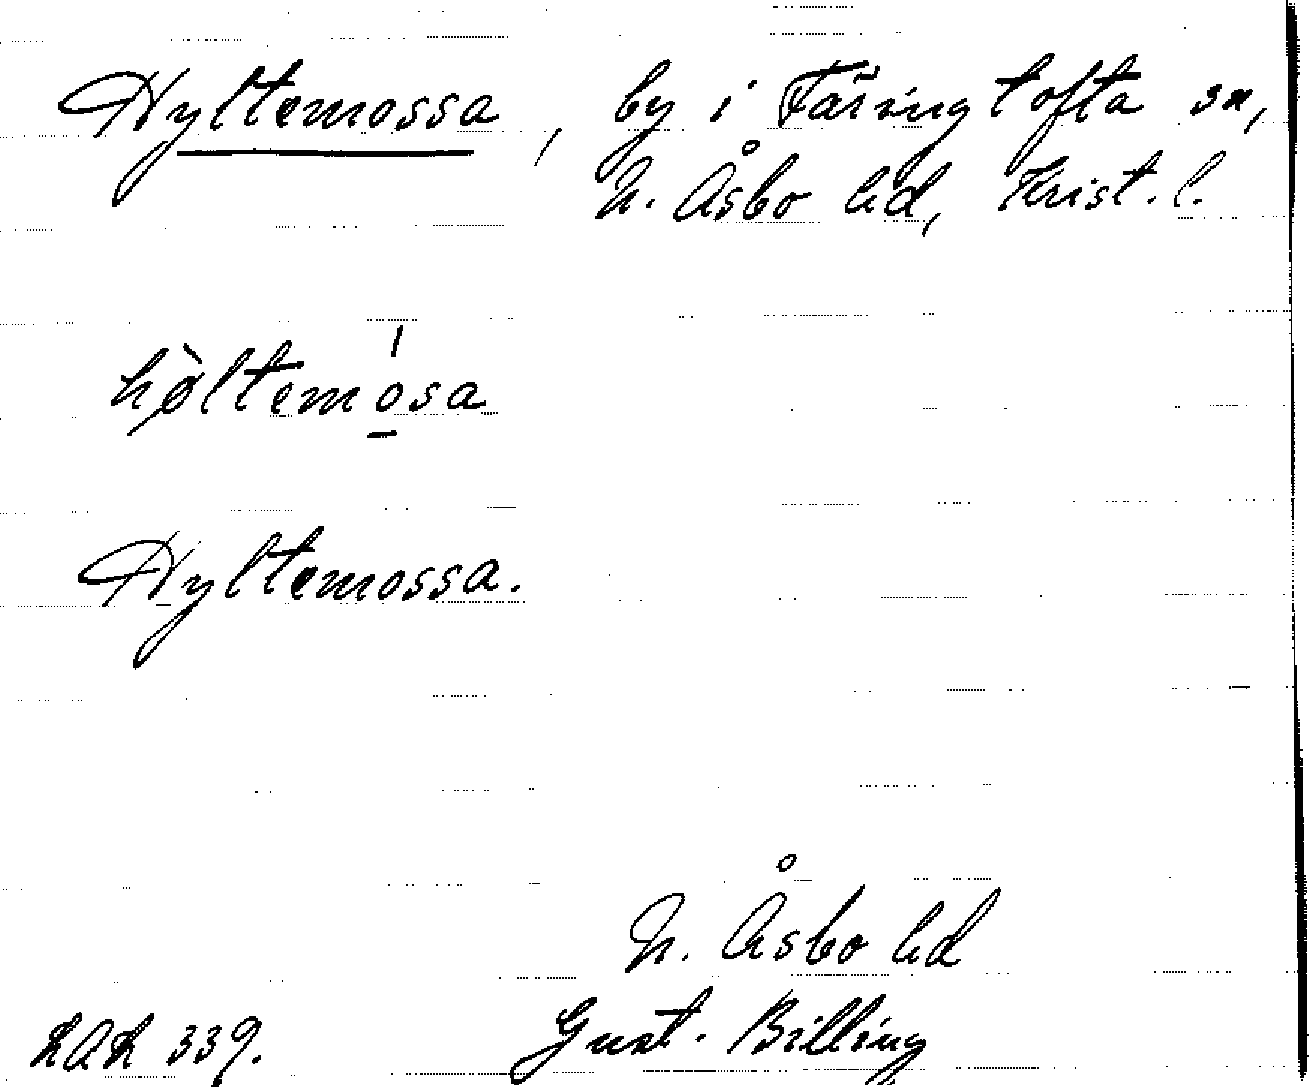 Hyltemossa, by i Färingtofta sn,
N. Åsbo hd, Krist. l.
hø̀ltemo̱sa
Hyltemossa.
N. Åsbo hd
LAL 339. Gust. Billing